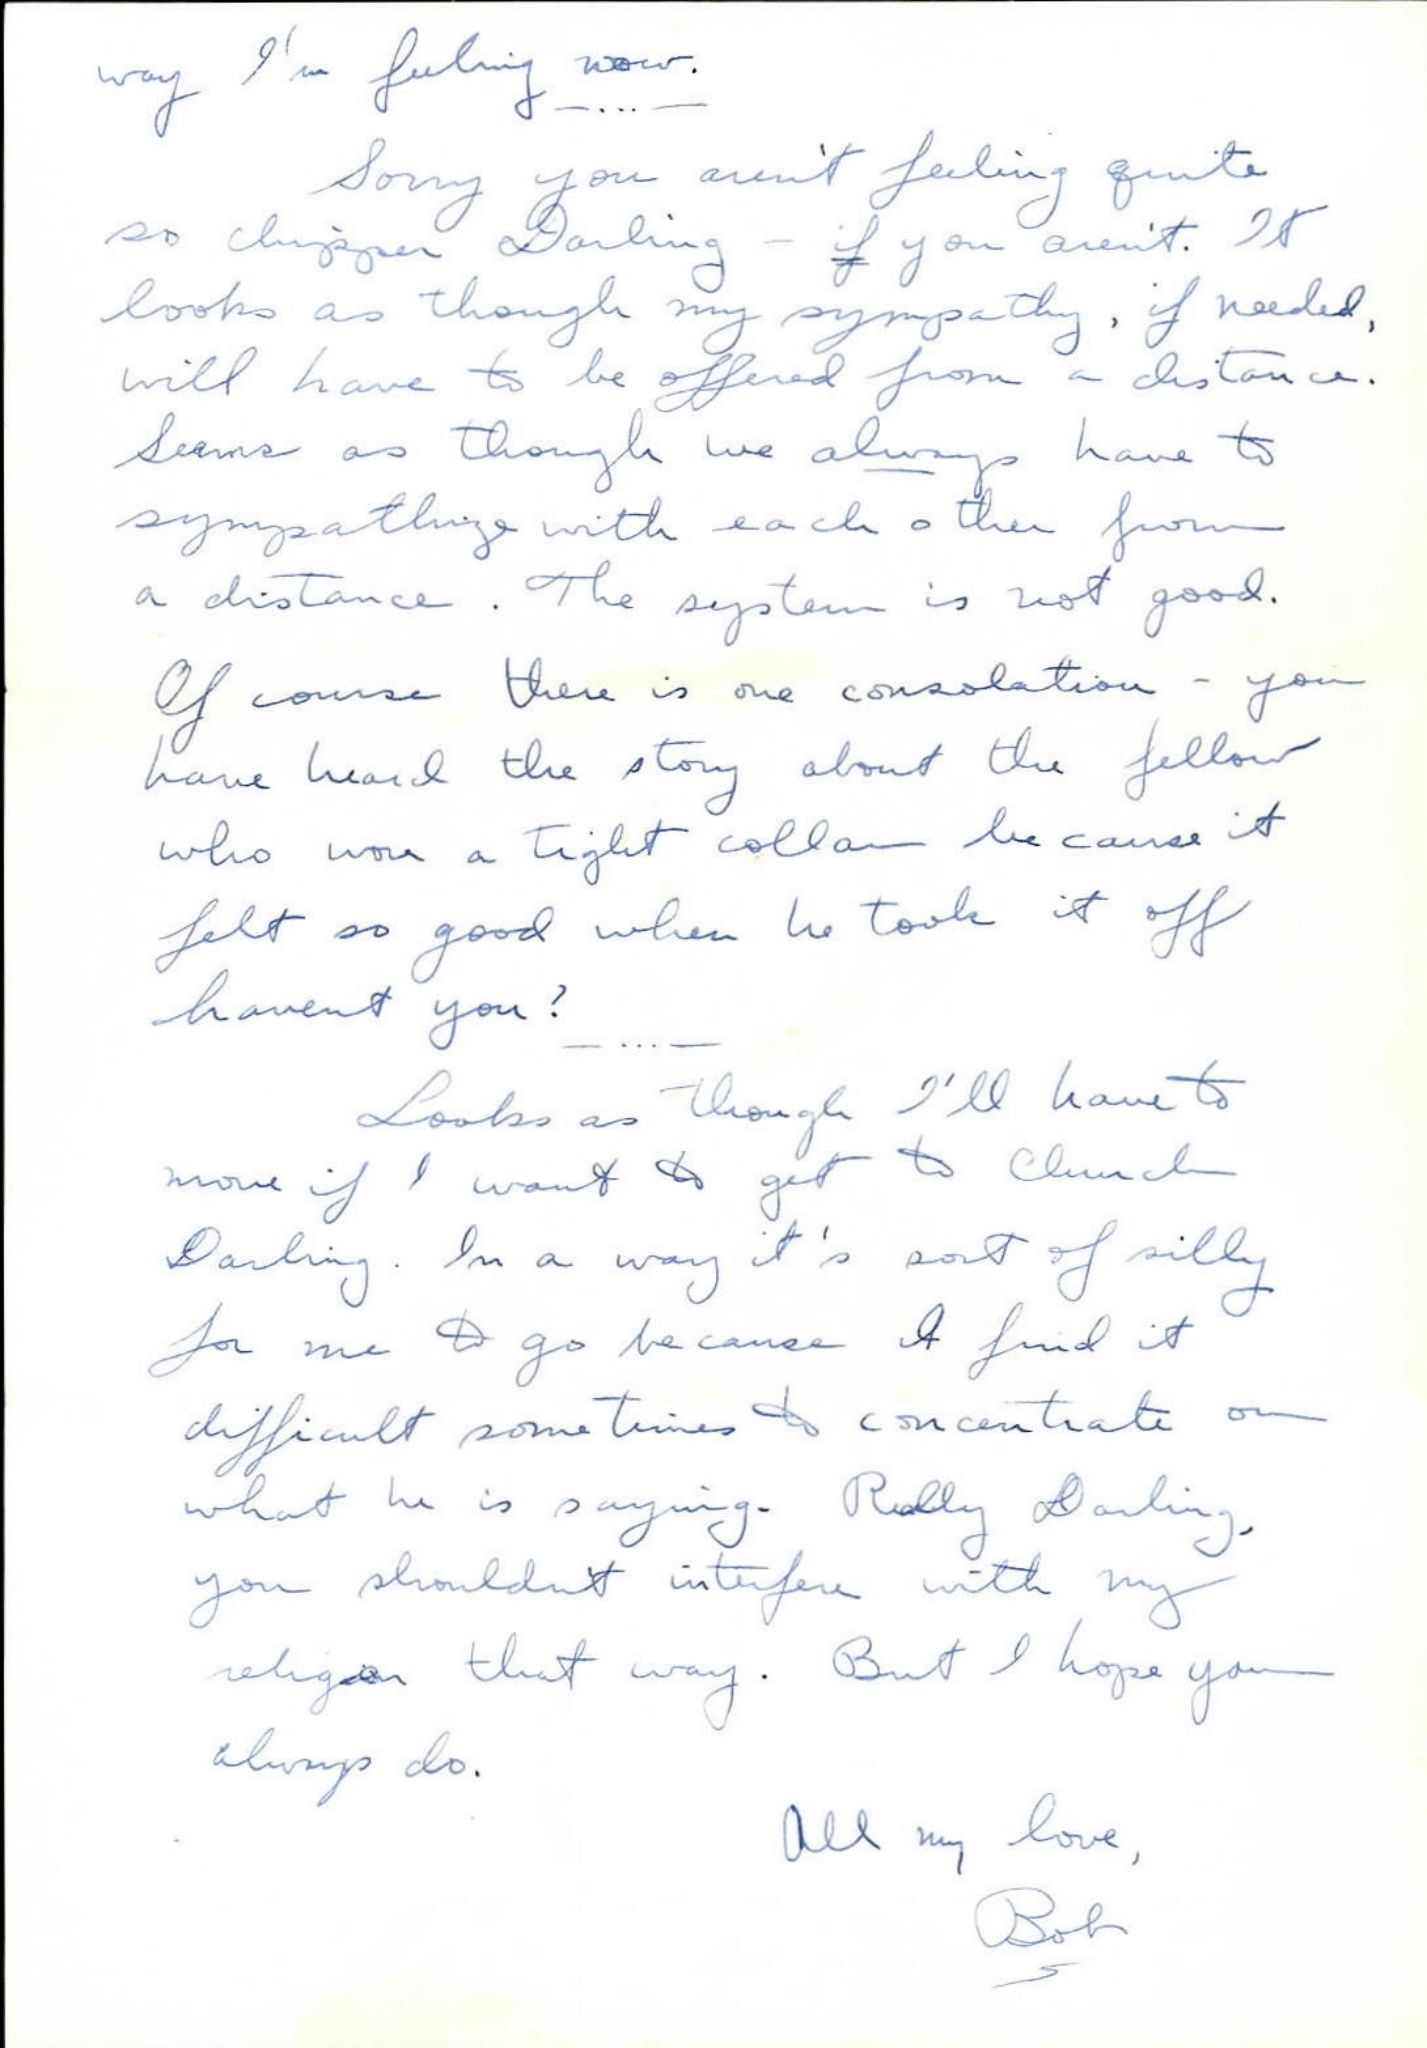 way I'm feeling now.
— ... —
Sorry you aren't feeling quite
so chipper Darling - if you aren't. It
looks as though my sympathy, if needed,
will have to be offered from a distance.
Seems as though we always have to
sympathize with each other from
a distance. The system is not good.
Of course there is one consolation - you
have heard the story about the fellow
who wore a tight collar because it
felt so good when he took it off
havent you?
— ... —
Looks as though I'll have to
move if I want to get to Church
Darling. In a way it's sort of silly
for me to go because I find it
difficult sometimes to concentrate on
what he is saying. Really Darling,
you shouldn't interfere with my
religion that way. But I hope you
always do.
All my love,
Bob